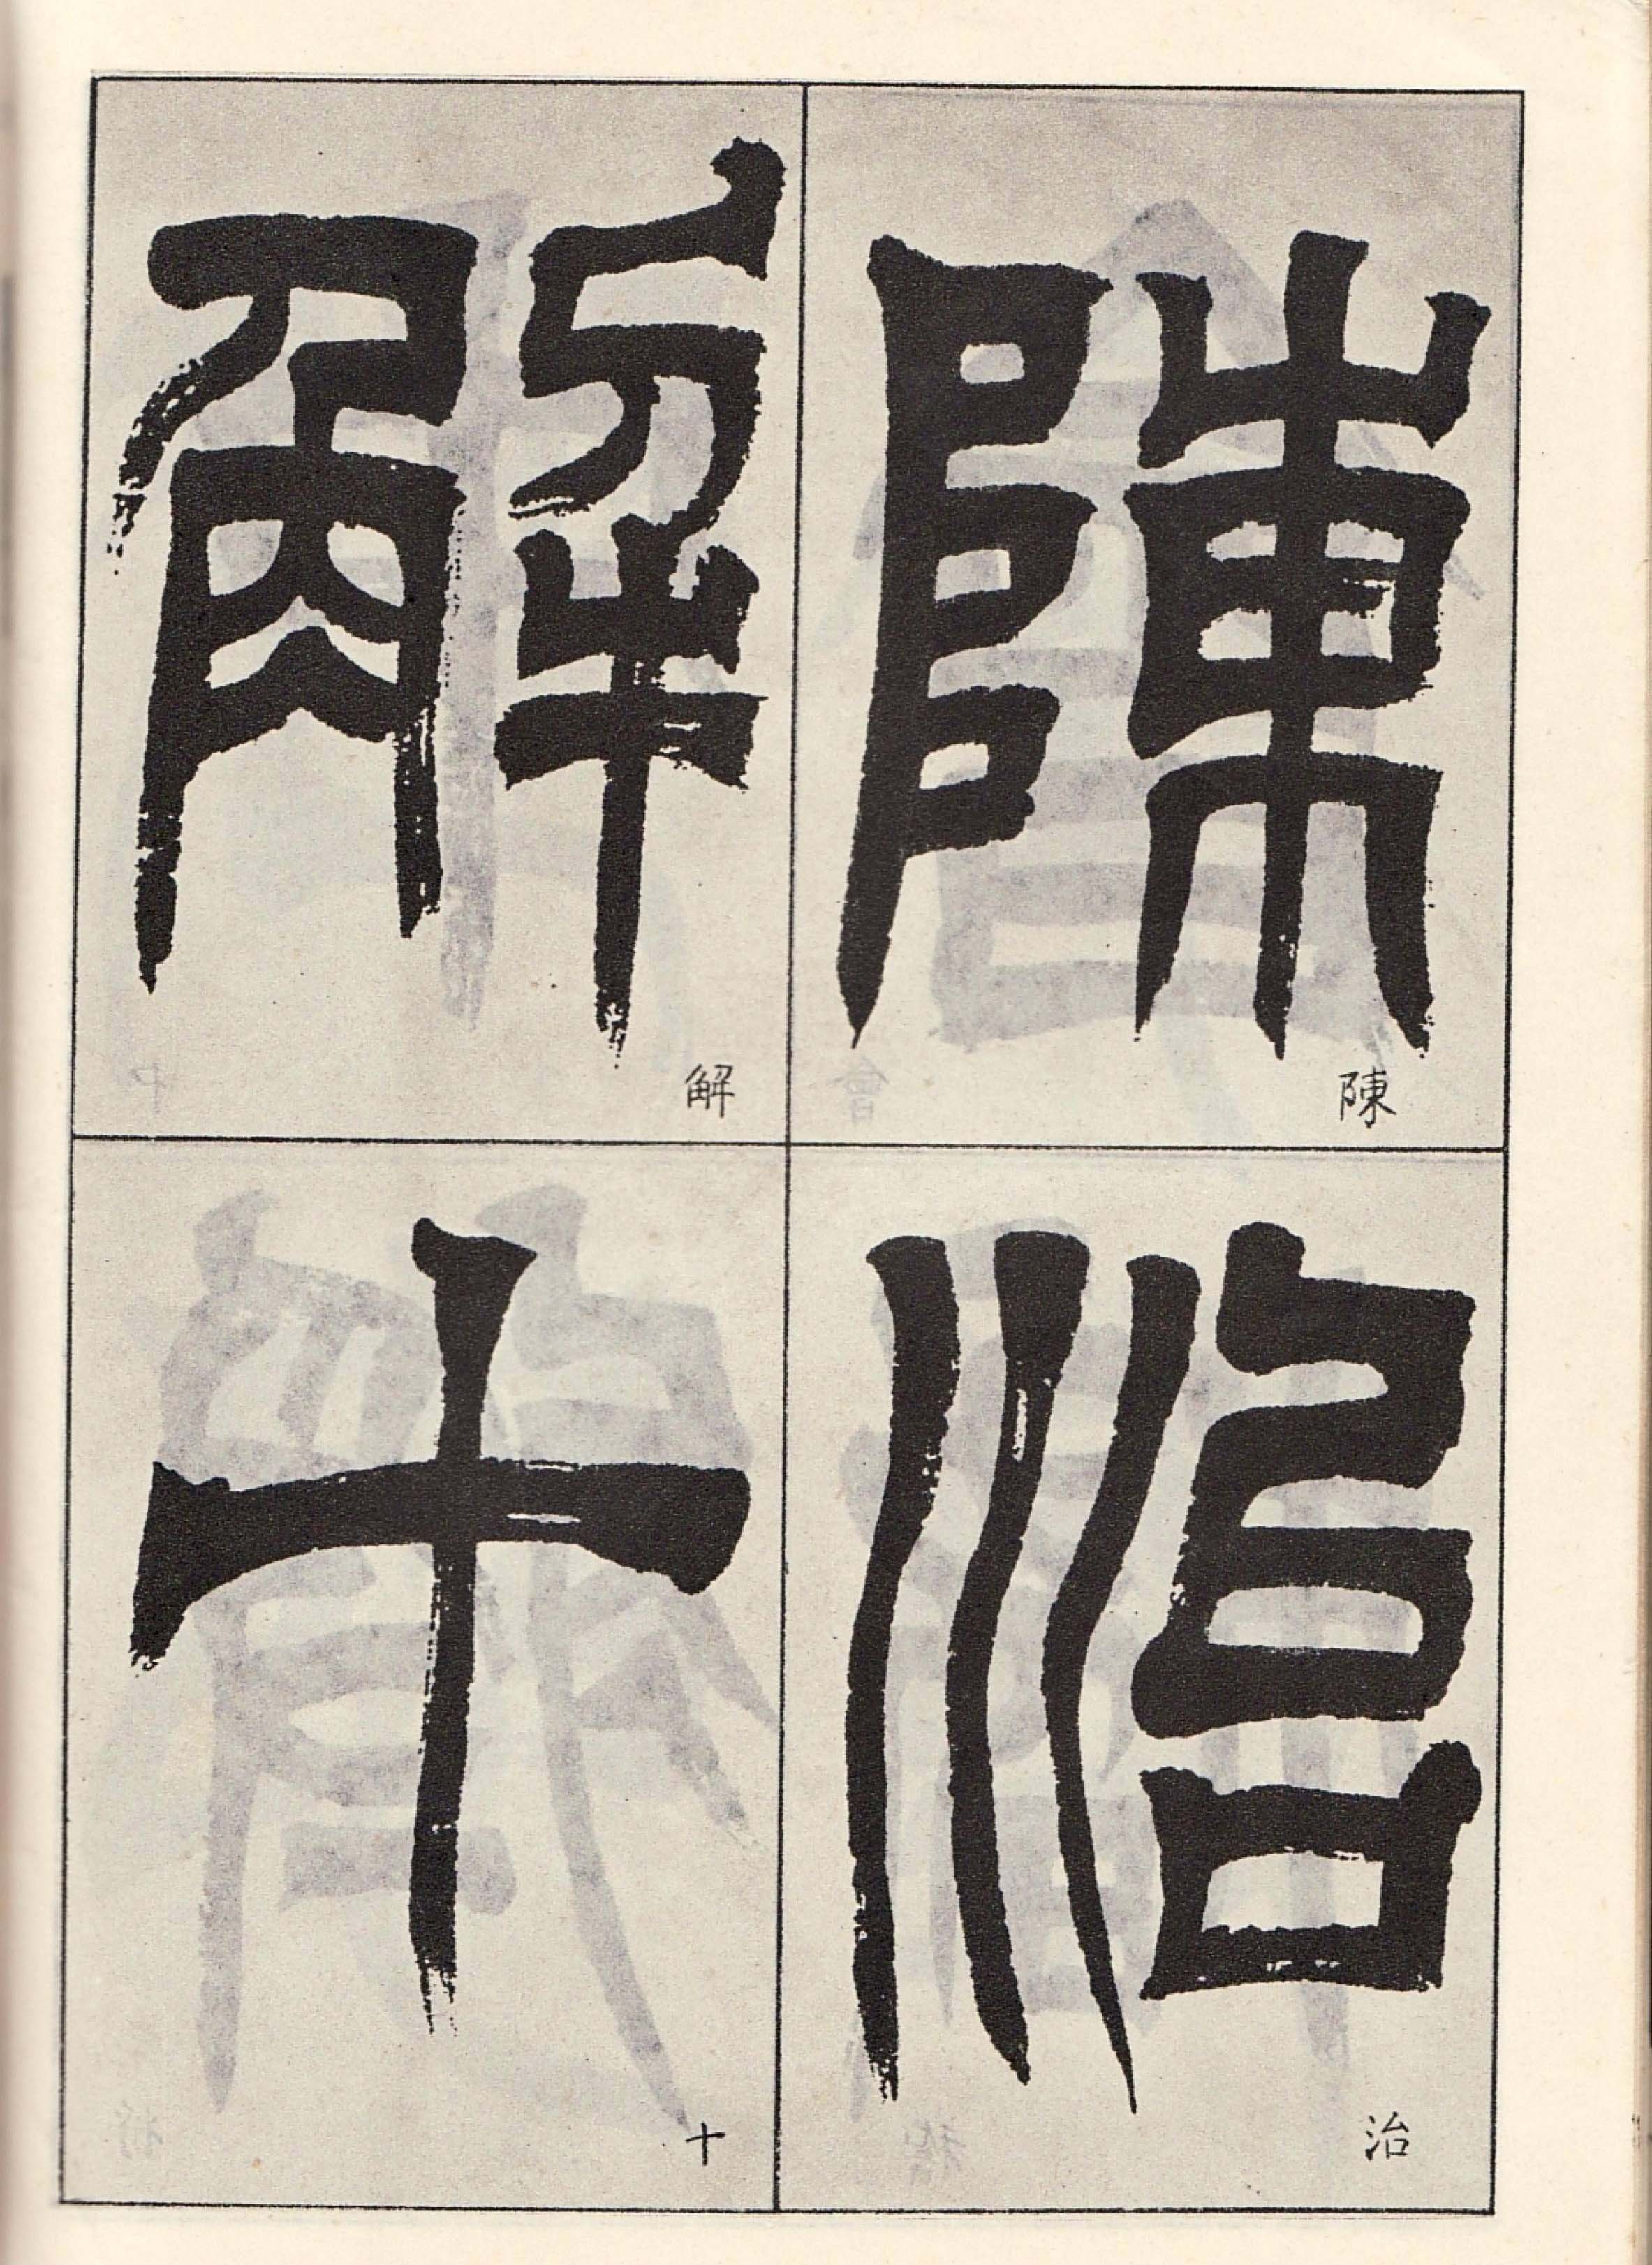 陳
陳
治
治
解
解
十
十